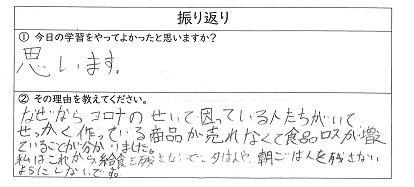 振り返り
① 今日の学習をやってよかったと思いますか?
思います。
② その理由を教えてください。
なぜなら コロナの せいで困っている人たちがいて、
せっかく作っている商品が売れなくて食品ロスが増え
ていることが分かりました。
私はこれから給食を残さないで夕はんや、朝ごはんを残さない
ようにしたいです。